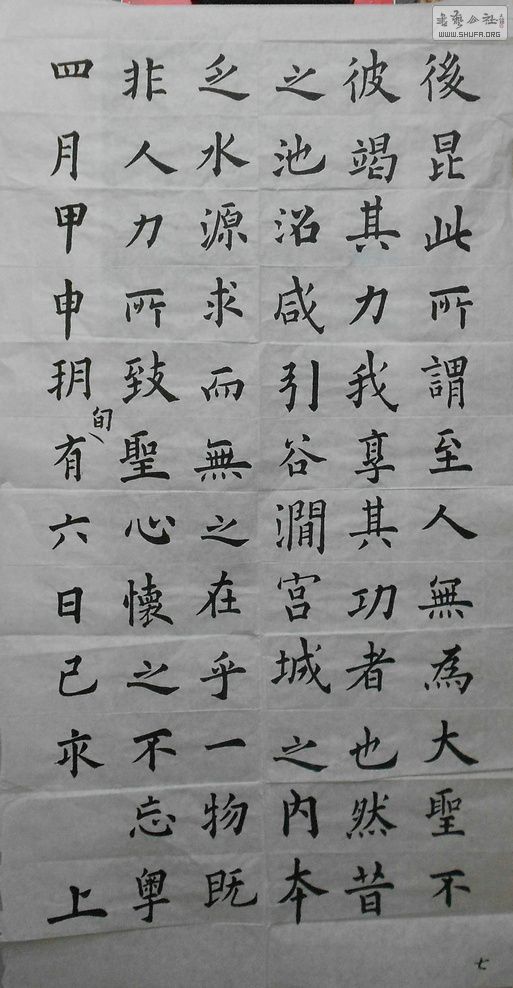 書藝公社
WWW.SHUFA.ORG
後昆此所謂至人無為大聖不
彼竭其力我享其功者也然昔
之池沼咸引谷澗宮城之內本
乏水源求而無之在乎一物既
非人力所致聖心懷之不忘粵
四月甲申朔旬有六日己亥上
七